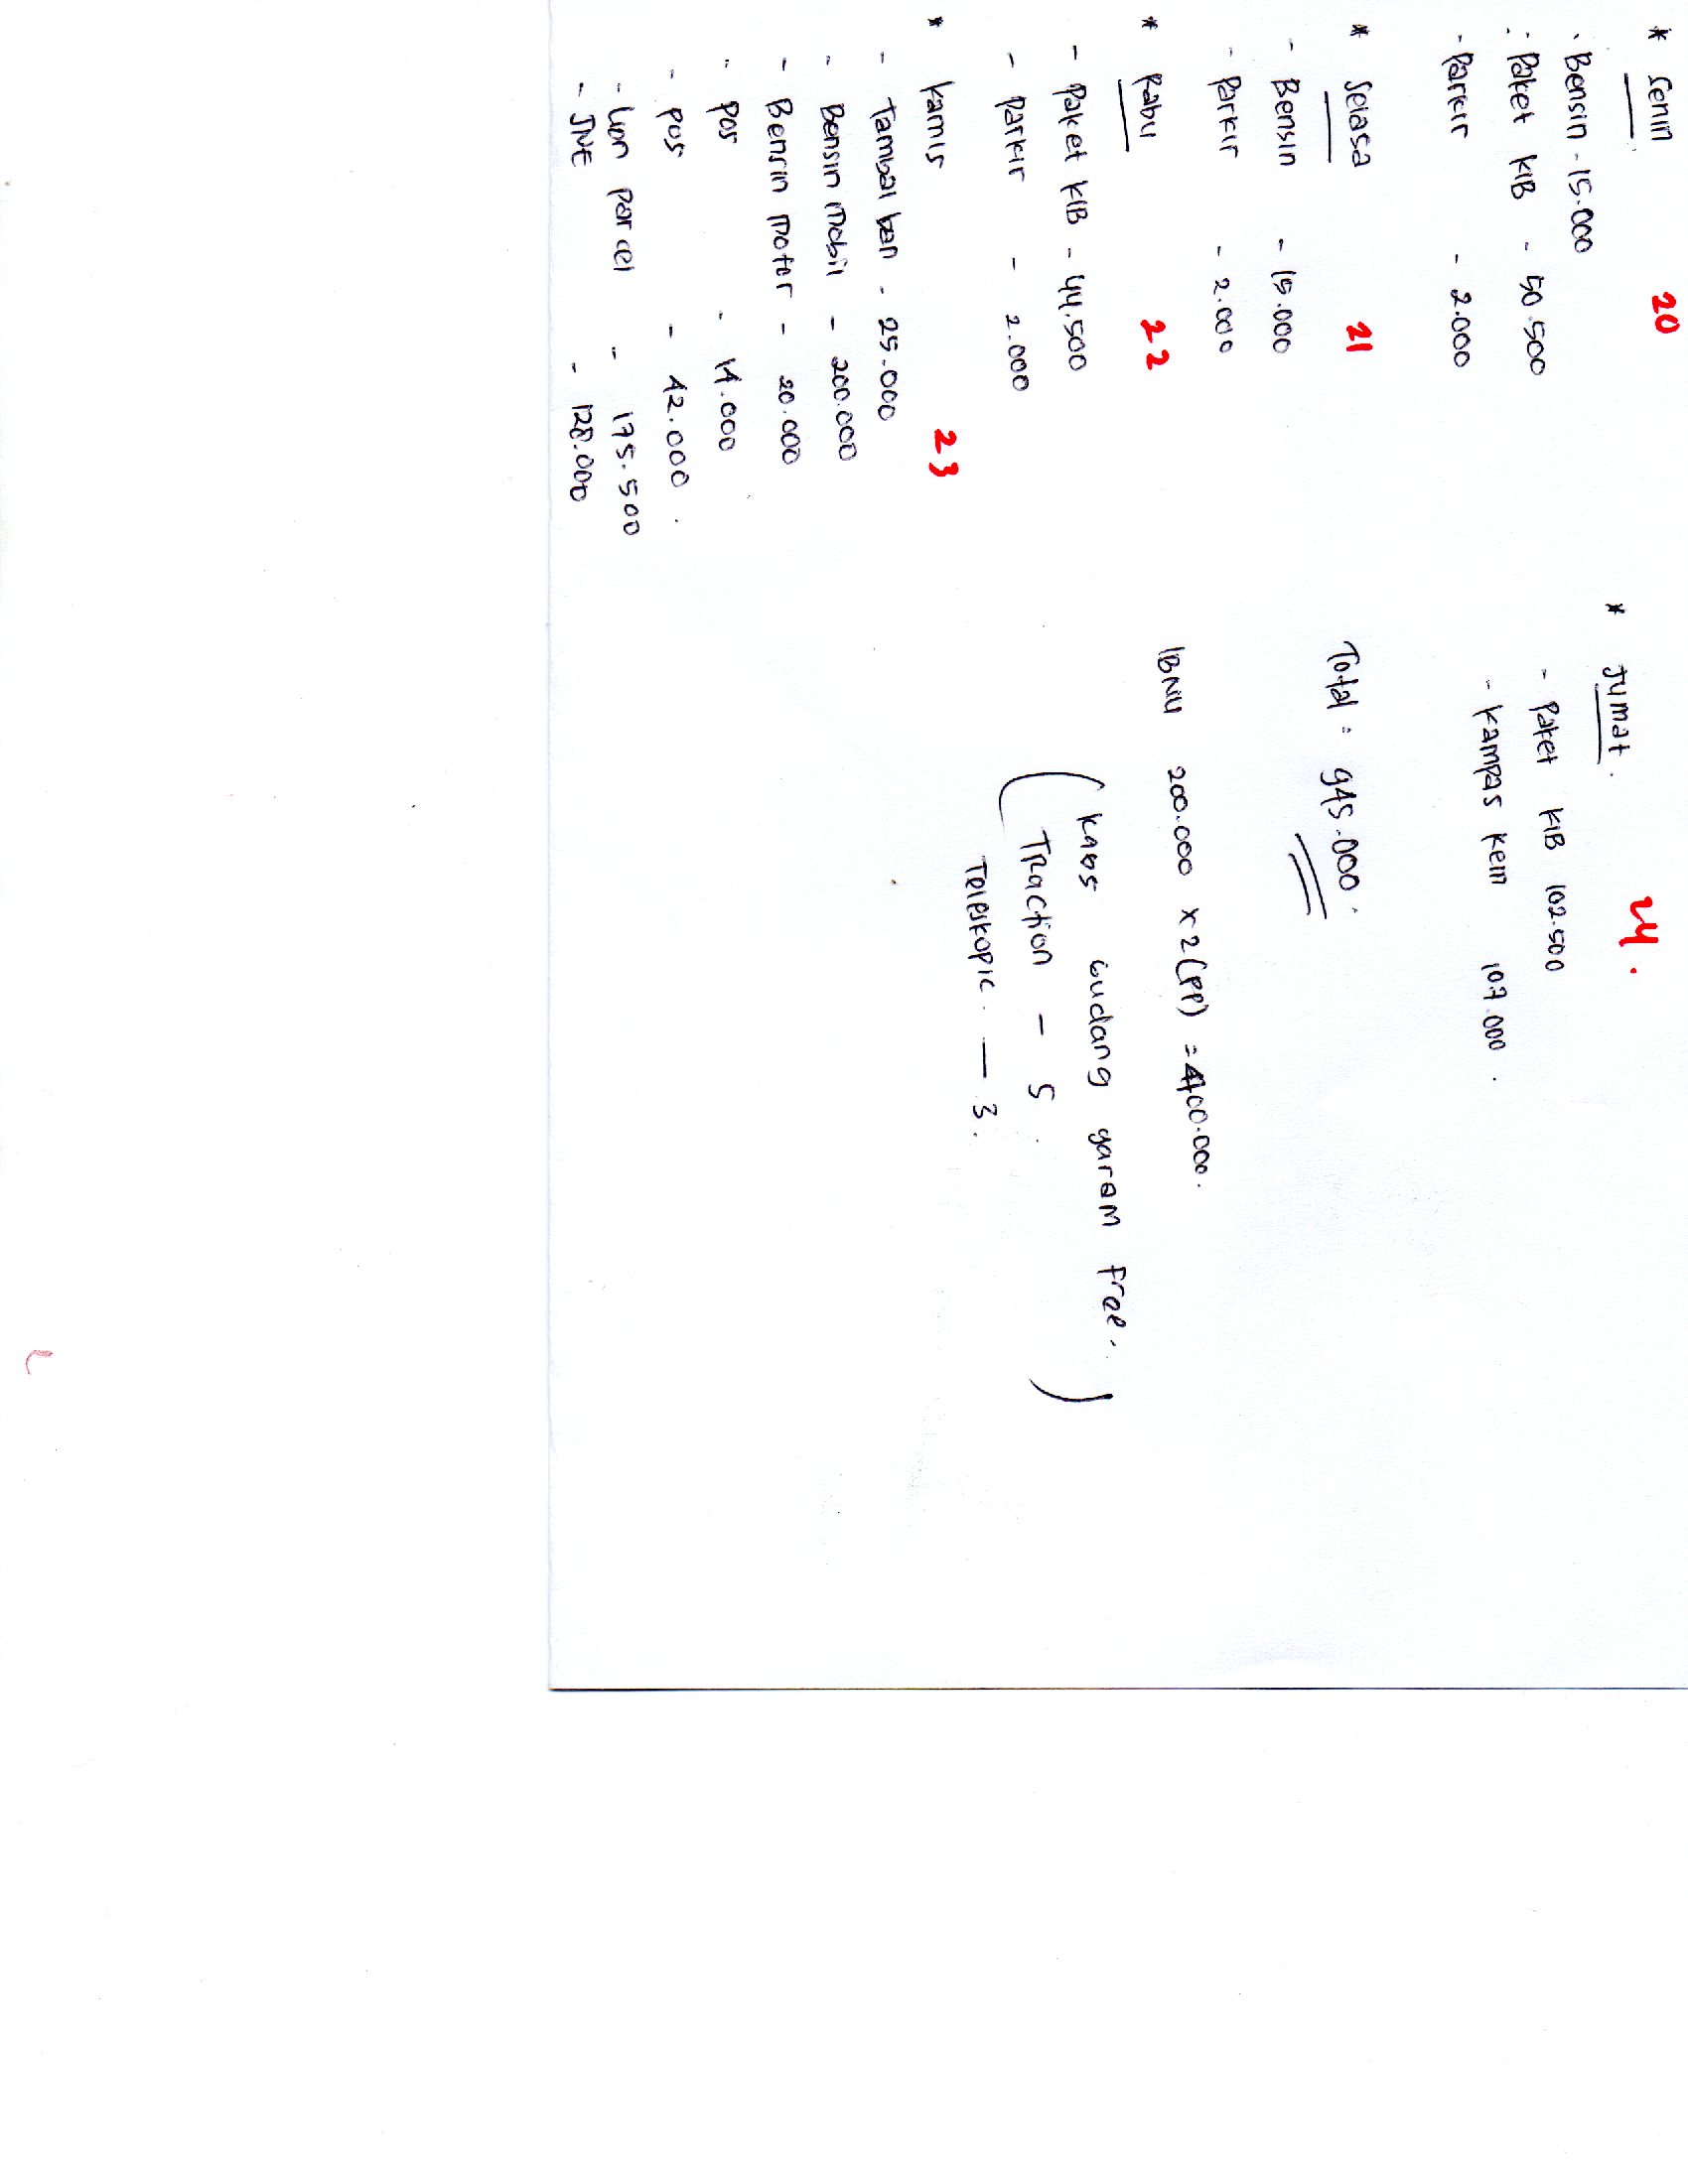 * Senin 20
- Bensin - 15.000
- Paket KIB - 50.500
- Parkir - 2.000
* Selasa 21
- Bensin - 15.000
- Parkir - 2.000
* Rabu 22
- Paket KIB - 44.500
- Parkir - 2.000
* Kamis 23
- Tambal ban - 25.000
- Bensin Mobil - 200.000
- Bensin Motor - 20.000
- Pos - 14.000
- Pos - 42.000.
- Lion parcel - 175.500
- JNE - 128.000
* Jumat. 24.
- Paket KIB 102.500
- Kampas Rem 107.000.
Total = 945.000.
IBNU 200.000 x 2 (PP) = 400.000.
( Kaos Gudang garam Free. )
Traction - 5.
Teleskopic. — 3.